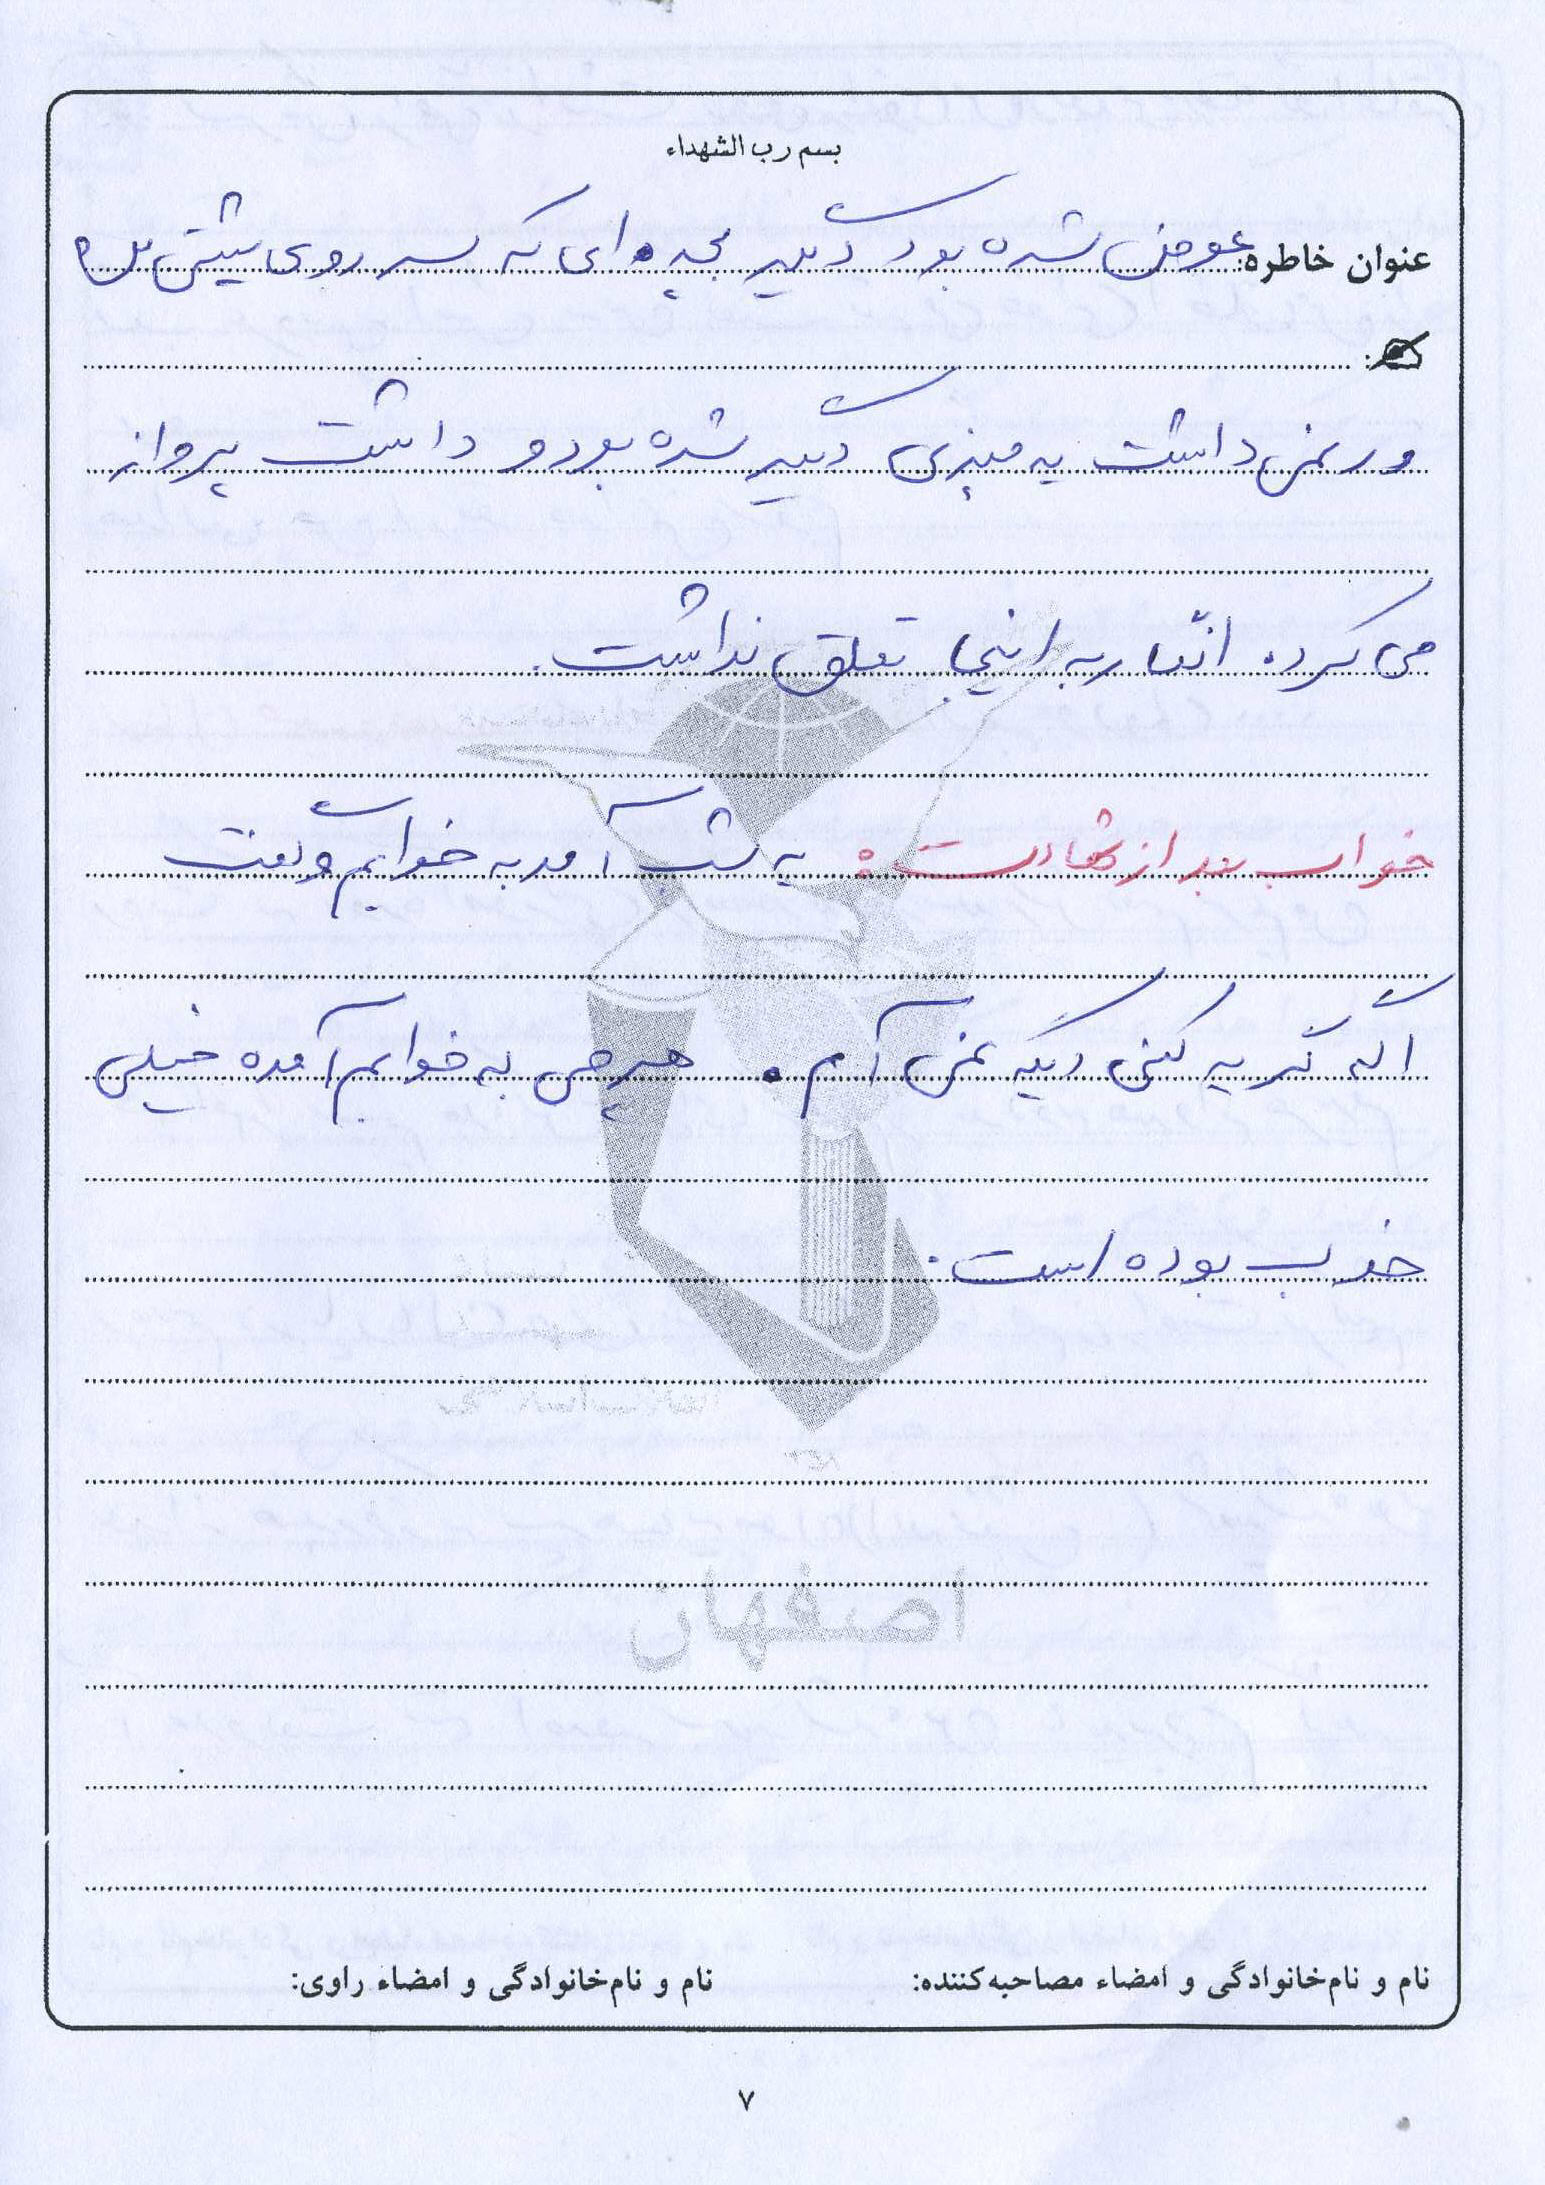 بسم رب الشهداء
عنوان خاطره: عوض شده بود دیگه بچه ای که سر روی پیش
ور نمی داشت یه چیزی دیگه شده بود و داشت پرواز
می کرده انگار به اینجا تعلق نداشت.
خواب بعد از شهادت: یه شب آمد به خوابم و گفت
اگه گریه کنی دیگه نمی آم. هرچی به خوابم آمده خیلی
خوب بوده است.
اصفهان
نام و نام‌خانوادگی و امضاء مصاحبه‌کننده: نام و نام‌خانوادگی و امضاء راوی:
۷